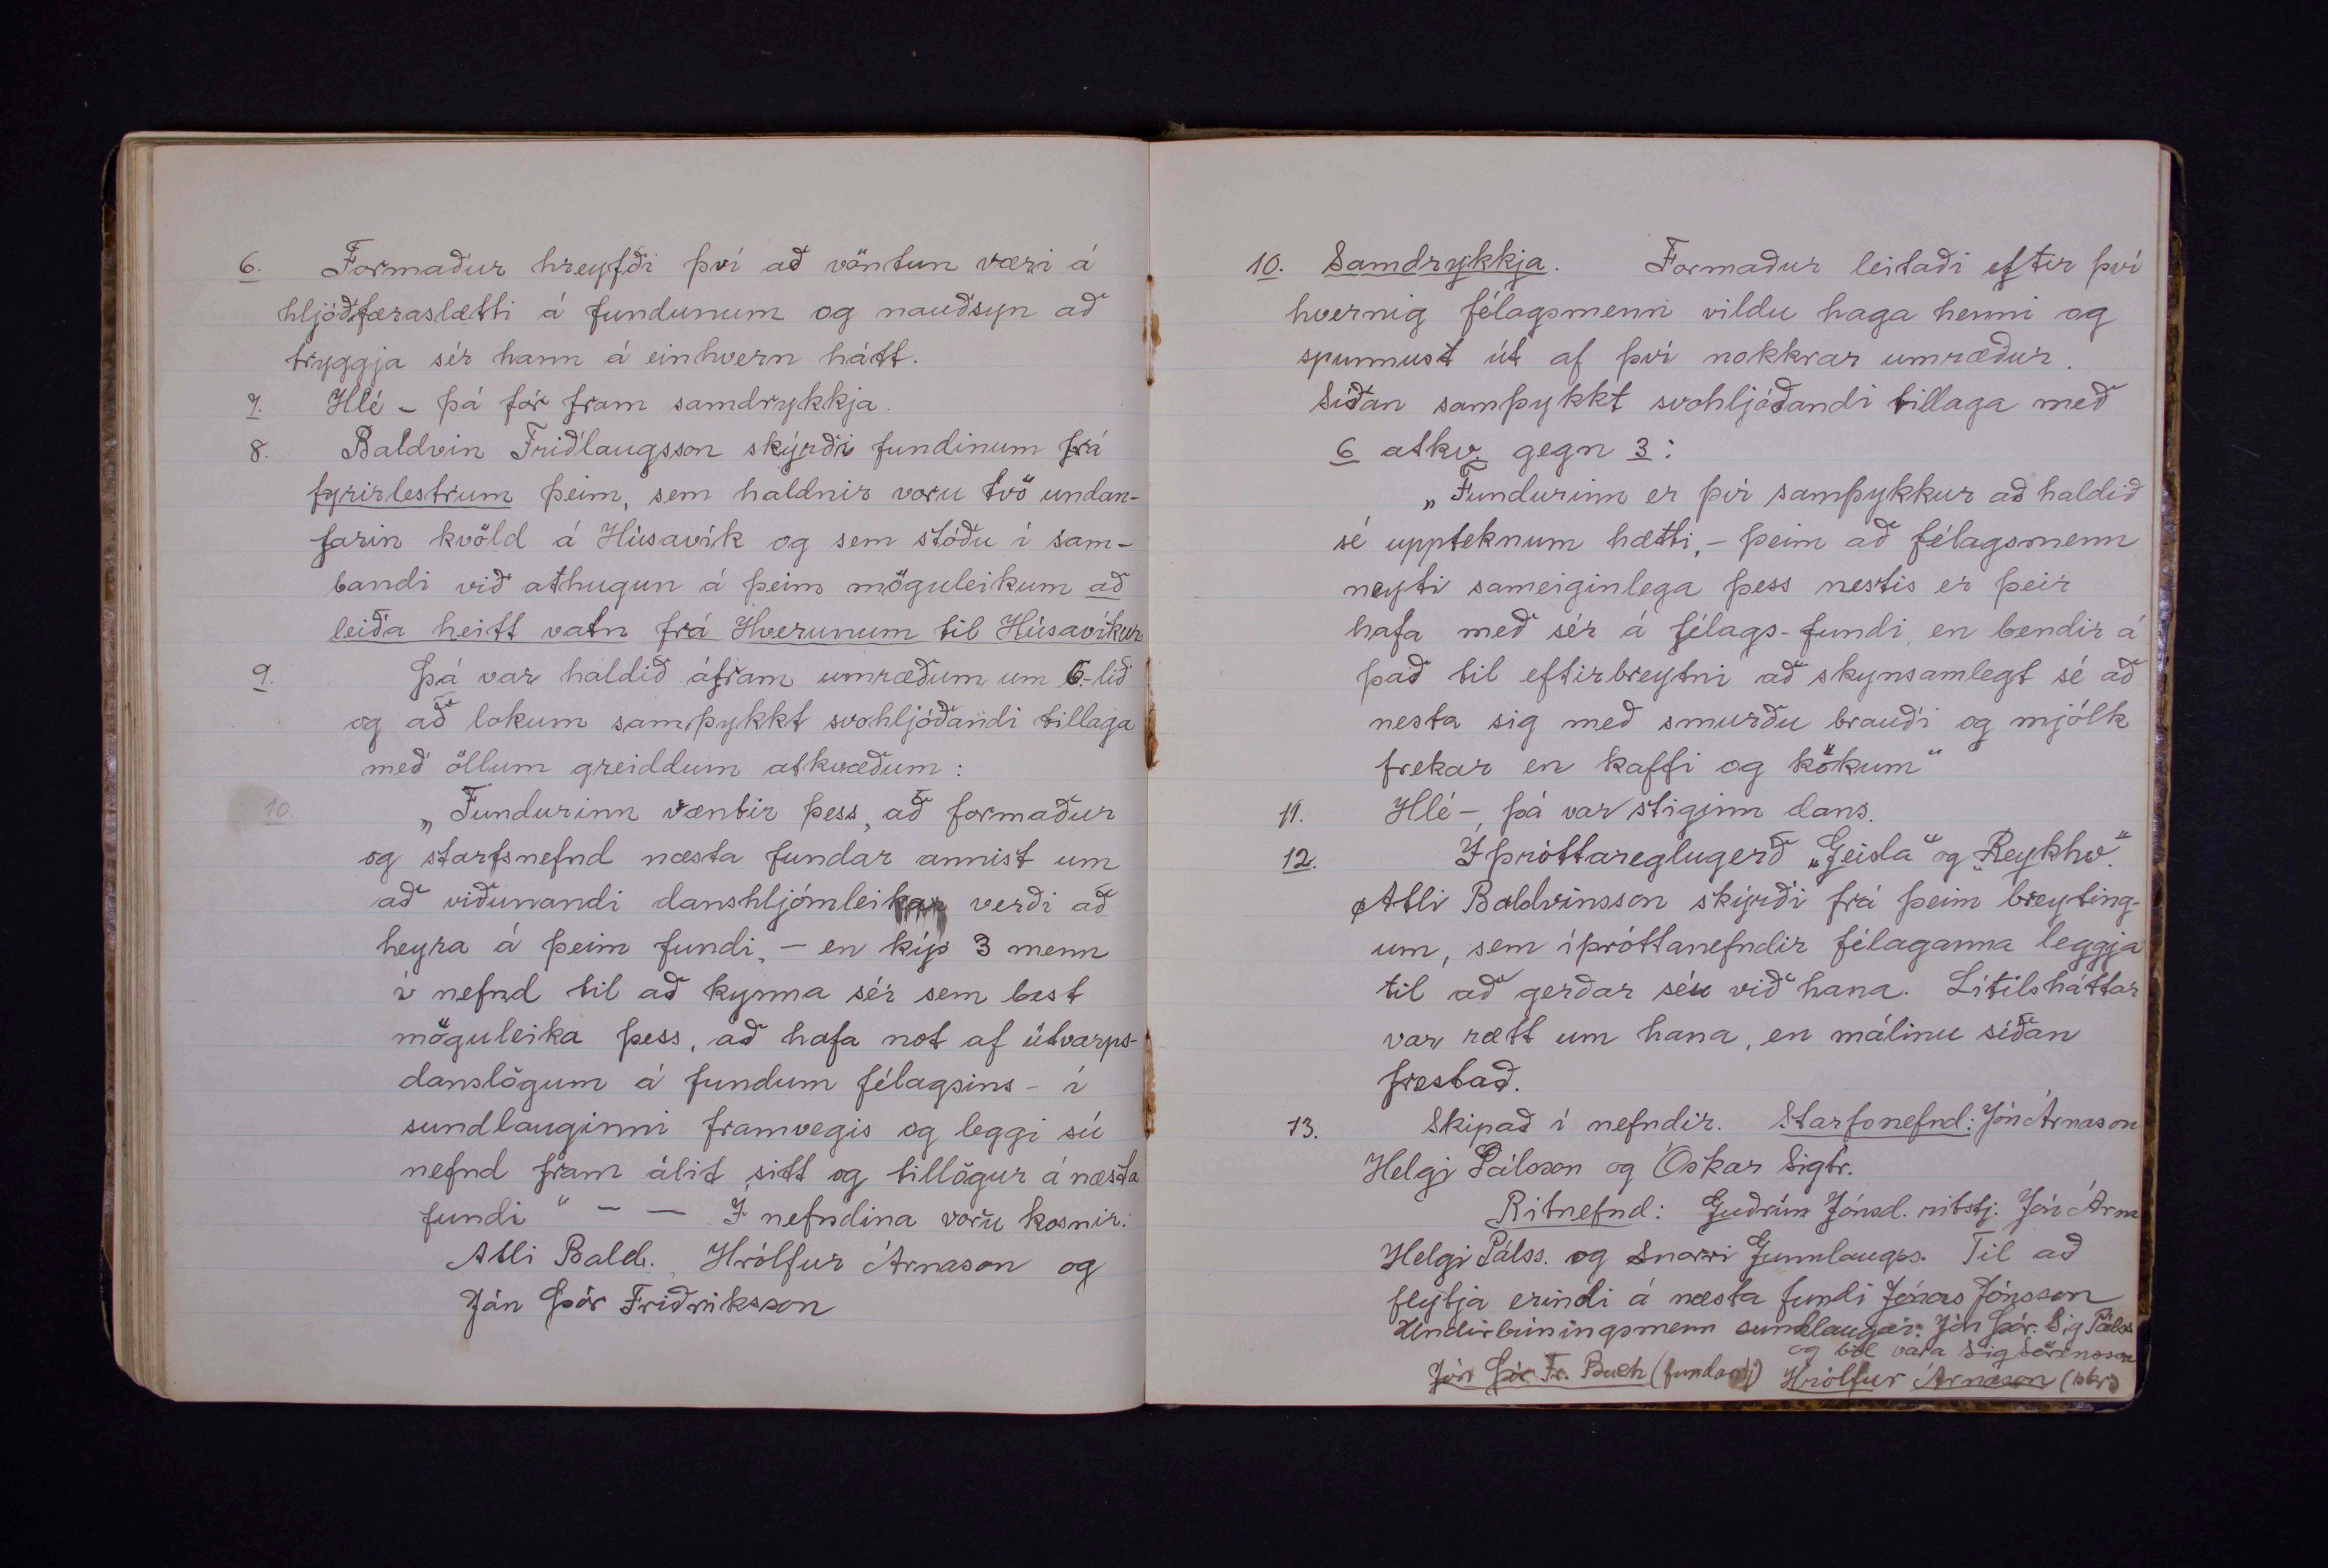 6. Formaður hreyfði því að vöntun væri á
hljóðfæraslætti á fundunum og nauðsyn að
tryggja sér hann á einhvern hátt.
7. Hlé - þá fór fram samdrykkja.
8. Baldvin Friðlaugsson skýrði fundinum frá
fyrirlestrum þeim, sem haldnir voru tvö undan-
farin kvöld á Húsavík og sem stóðu í sam-
bandi við athugun á þeim möguleikum að
leiða heitt vatn frá Hverunum til Húsavíkur
9. Þá var haldið áfram umræðum um 6.-lið
og að lokum samþykkt svohljóðandi tillaga
með öllum greiddum atkvæðum:
10. „Fundurinn væntir þess, að formaður
og starfsnefnd næsta fundar annist um
að viðunandi danshljómleikar verði að
heyra á þeim fundi, - en kýs 3 menn
í nefnd til að kynna sér sem best
möguleika þess, að hafa not af útvarps-
danslögum á fundum félagsins - í
sundlauginni framvegis og leggi sú
nefnd fram álit sitt og tillögur á næsta
fundi" - - Í nefndina voru kosnir:
Atli Bald. Hrólfur Árnason og
Jón Þór Friðriksson
10. Samdrykkja. Formaður leitaði eftir því
hvernig félagsmenn vildu haga henni og
spunnust út af því nokkrar umræður.
Síðan samþykkt svohljóðandi tillaga með
6 atkv. gegn 3:
„Fundurinn er því samþykkur að haldið
sé uppteknum hætti, - þeim að félagsmenn
neyti sameiginlega þess nestis er þeir
hafa með sér á félags-fundi, en bendir á
það til eftirbreytni að skynsamlegt sé að
nesta sig með smurðu brauði og mjólk
frekar en kaffi og kökum"
11. Hlé -, þá var stiginn dans.
12. Íþróttareglugerð „Geisla" og „Reykhv."
Atli Baldvinsson skýrði frá þeim breyting-
um, sem íþróttanefndir félaganna leggja
til að gerðar séu við hana. Lítilsháttar
var rætt um hana, en málinu síðan
frestað.
13. Skipað í nefndir. Starfsnefnd: Jón Árnason
Helgi Pálsson og Óskar Sigtr.
Ritnefnd: Guðrún Jónsd. ritstj. Jón Árna
Helgi Pálss. og Snorri Gunnlaugs. Til að
flytja erindi á næsta fundi Jónas Jónsson
Undirbúningsmenn sundlaugar: Jón Þór. Sig Pálss
og til vara Sig Sörensson
Jón Þór Fr. Buch (fundarstj) Hrólfur Árnason (skr)